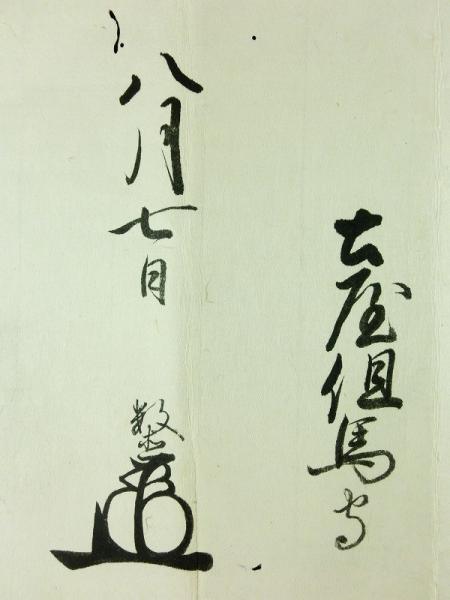 土屋但馬守
八月七日
数直